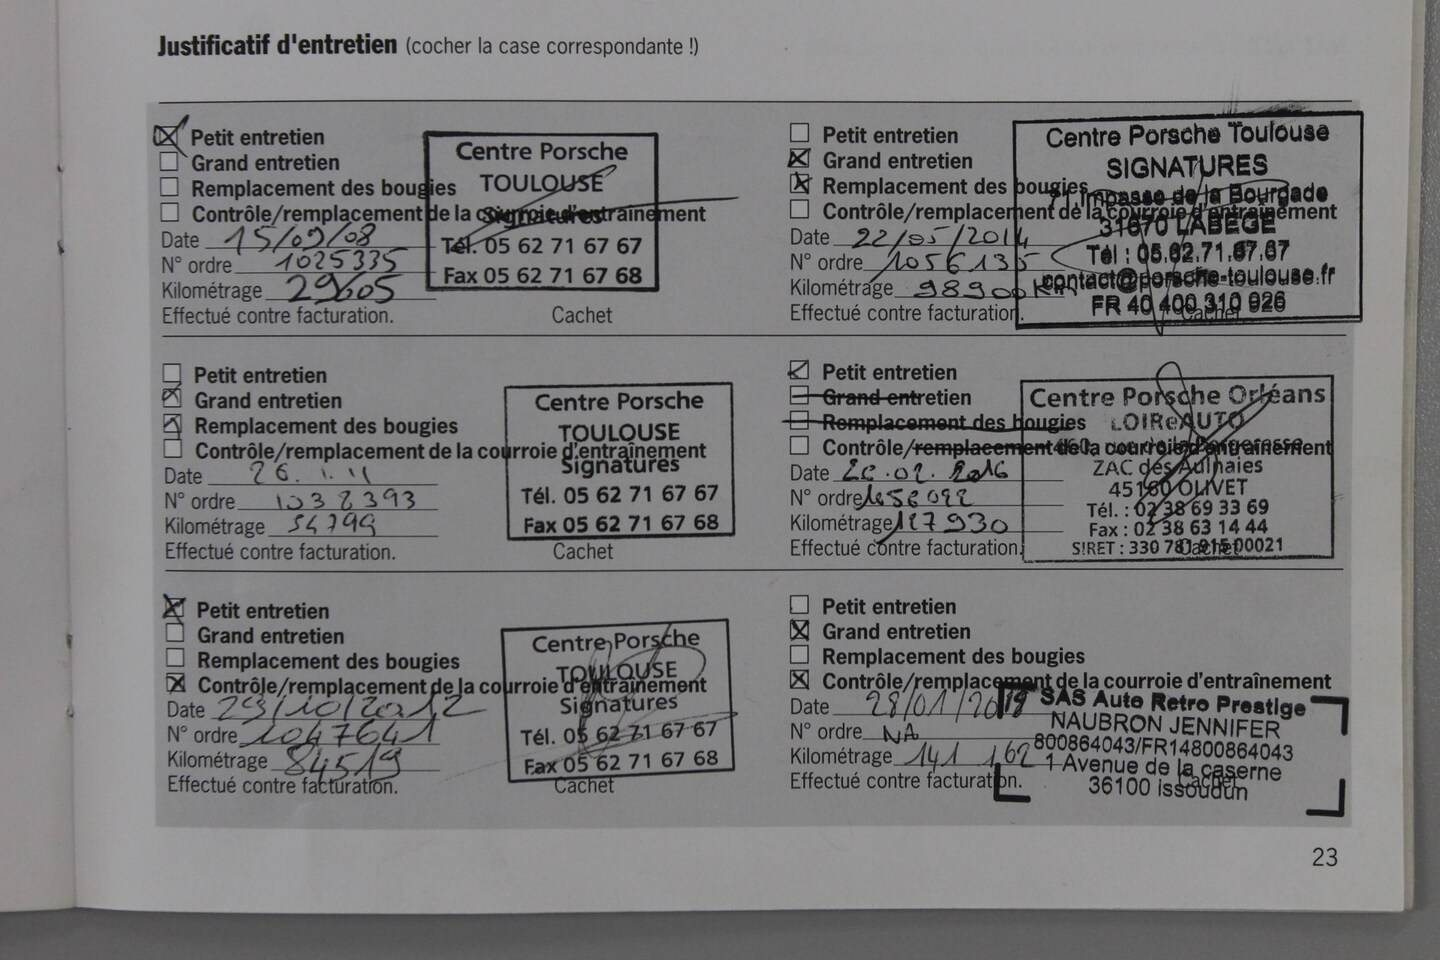 Justificatif d'entretien (cocher la case correspondante !)
Petit entretien
Grand entretien
Remplacement des bougies
Contrôle/remplacement de la courroie d'entraînement
Date 15/09/08
N° ordre 1025335
Kilométrage 29605
Effectué contre facturation.
Cachet
Centre Porsche
TOULOUSE
Signatures
Tél. 05 62 71 67 67
Fax 05 62 71 67 68
Petit entretien
Grand entretien
Remplacement des bougies
Contrôle/remplacement de la courroie d'entraînement
Date 22/05/2014
N° ordre 1056135
Kilométrage 98900 Km
Effectué contre facturation.
Cachet
Centre Porsche Toulouse
SIGNATURES
71 Impasse de la Bourgade
31670 LABEGE
Tél : 05.62.71.67.67
contact@porsche-toulouse.fr
FR 40 400 310 926
Petit entretien
Grand entretien
Remplacement des bougies
Contrôle/remplacement de la courroie d'entraînement
Date 26.1.11
N° ordre 1038393
Kilométrage 54799
Effectué contre facturation.
Cachet
Centre Porsche
TOULOUSE
Signatures
Tél. 05 62 71 67 67
Fax 05 62 71 67 68
Petit entretien
Grand entretien
Remplacement des bougies
Contrôle/remplacement de la courroie d'entraînement
Date 26.02.2016
N° ordre
Kilométrage 127930
Effectué contre facturation.
Cachet
Centre Porsche Orléans
LOIReAUTO
ZAC des Aulnaies
45160 OLIVET
Tél. : 02 38 69 33 69
Fax : 02 38 63 14 44
SIRET : 330 781 915 00021
Petit entretien
Grand entretien
Remplacement des bougies
Contrôle/remplacement de la courroie d'entraînement
Date 29/10/2012
N° ordre 1047641
Kilométrage 84519
Effectué contre facturation.
Cachet
Centre Porsche
TOULOUSE
Signatures
Tél. 05 62 71 67 67
Fax 05 62 71 67 68
Petit entretien
Grand entretien
Remplacement des bougies
Contrôle/remplacement de la courroie d'entraînement
Date 28/01/2019
N° ordre NA
Kilométrage 141 162
Effectué contre facturation.
Cachet
SAS Auto Retro Prestige
NAUBRON JENNIFER
800864043/FR14800864043
1 Avenue de la caserne
36100 Issoudun
23